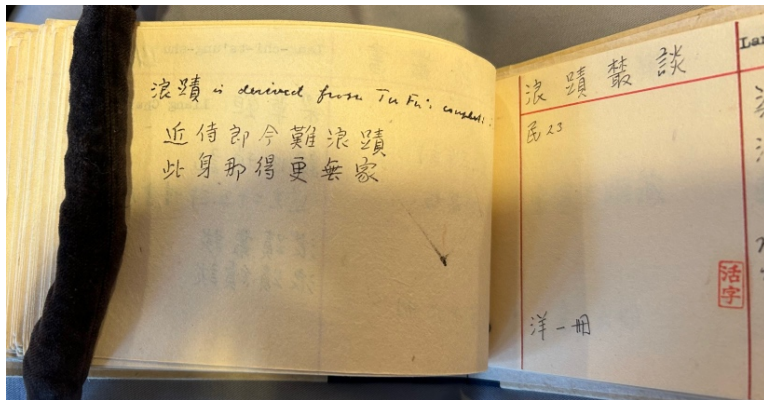 浪蹟 is derived from Tu Fu's couplet:
近侍即今難浪蹟
此身那得更無家
浪蹟叢談
民23
洋一冊
活字
Lan